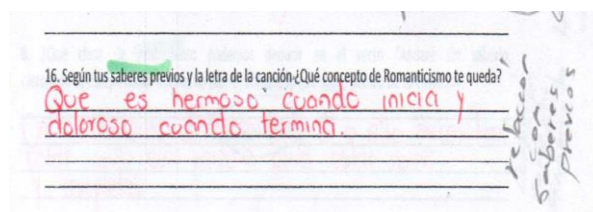 16. Según tus saberes previos y la letra de la canción ¿Qué concepto de Romanticismo te queda?
Que es hermoso cuando inicia y
doloroso cuando termina.
rebacar
con
saberes
previos